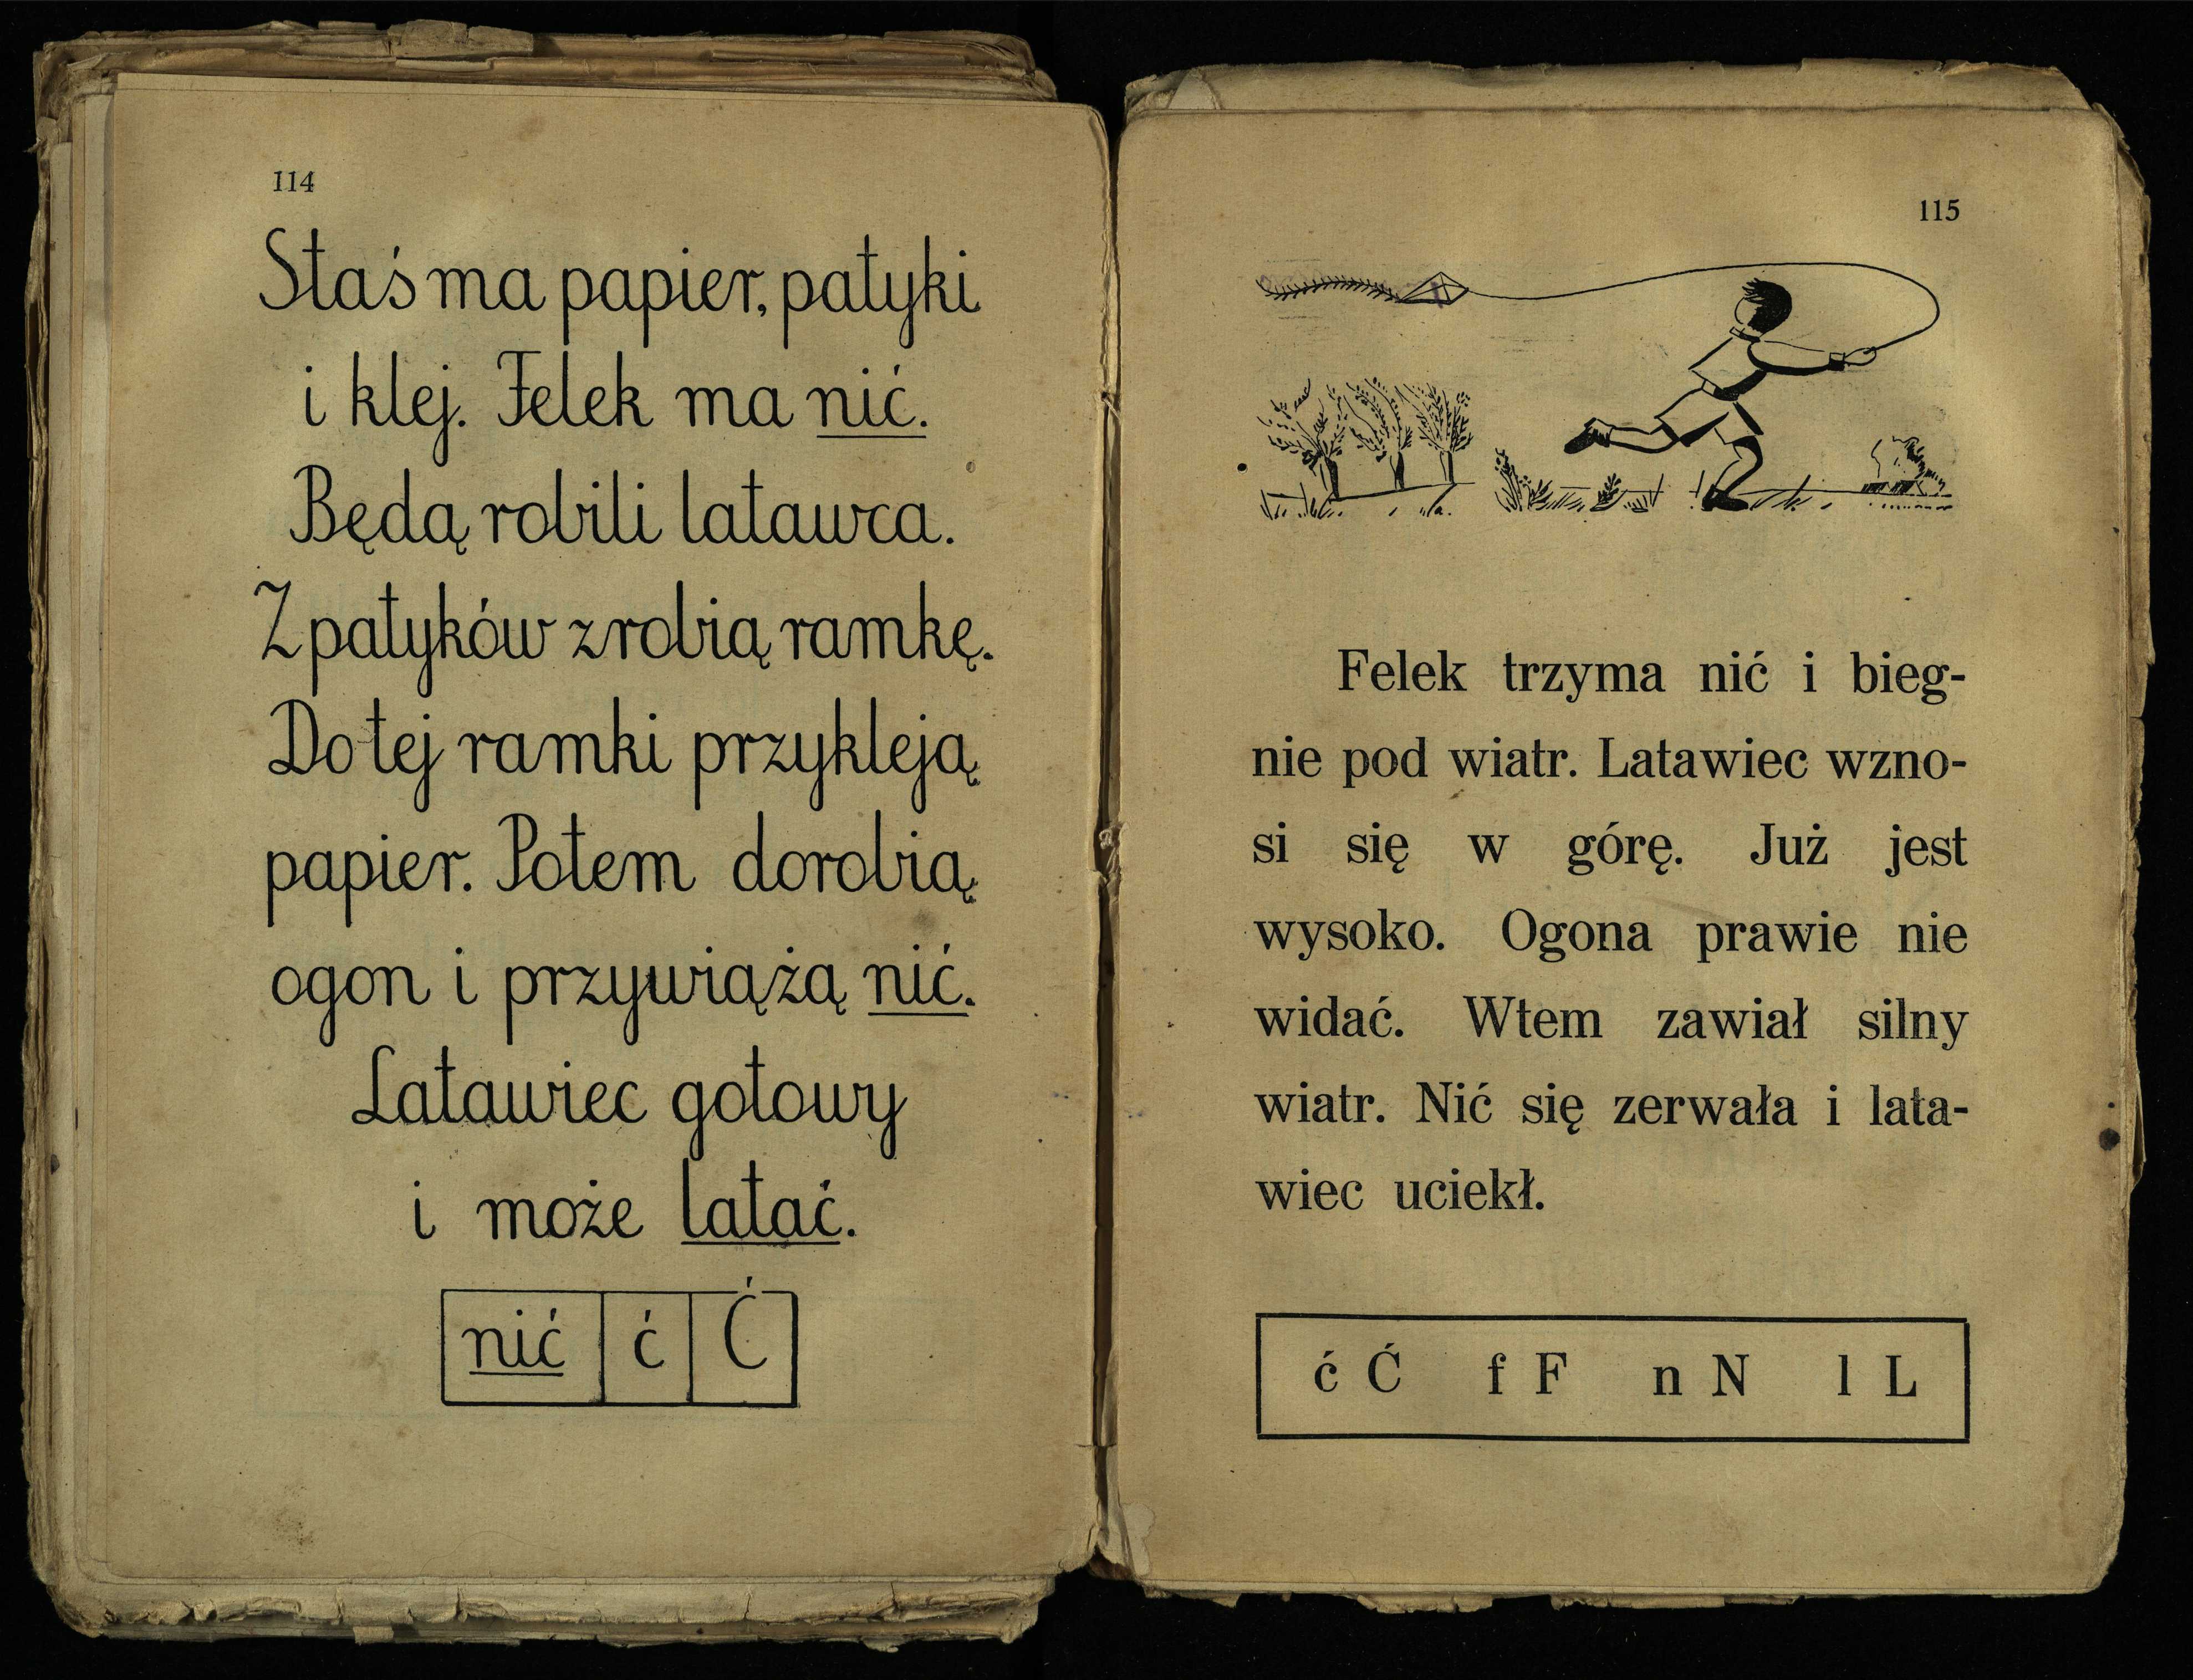 114
Staś ma papier, patyki
i klej. Felek ma nić.
Będą robili latawca.
Z patyków zrobią ramkę.
Do tej ramki przykleją
papier. Potem dorobią
ogon i przywiążą nić.
Latawiec gotowy
i może latać.
nić ć Ć
115
Felek trzyma nić i bieg-
nie pod wiatr. Latawiec wzno-
si się w górę. Już jest
wysoko. Ogona prawie nie
widać. Wtem zawiał silny
wiatr. Nić się zerwała i lata-
wiec uciekł.
ć Ć f F n N l L